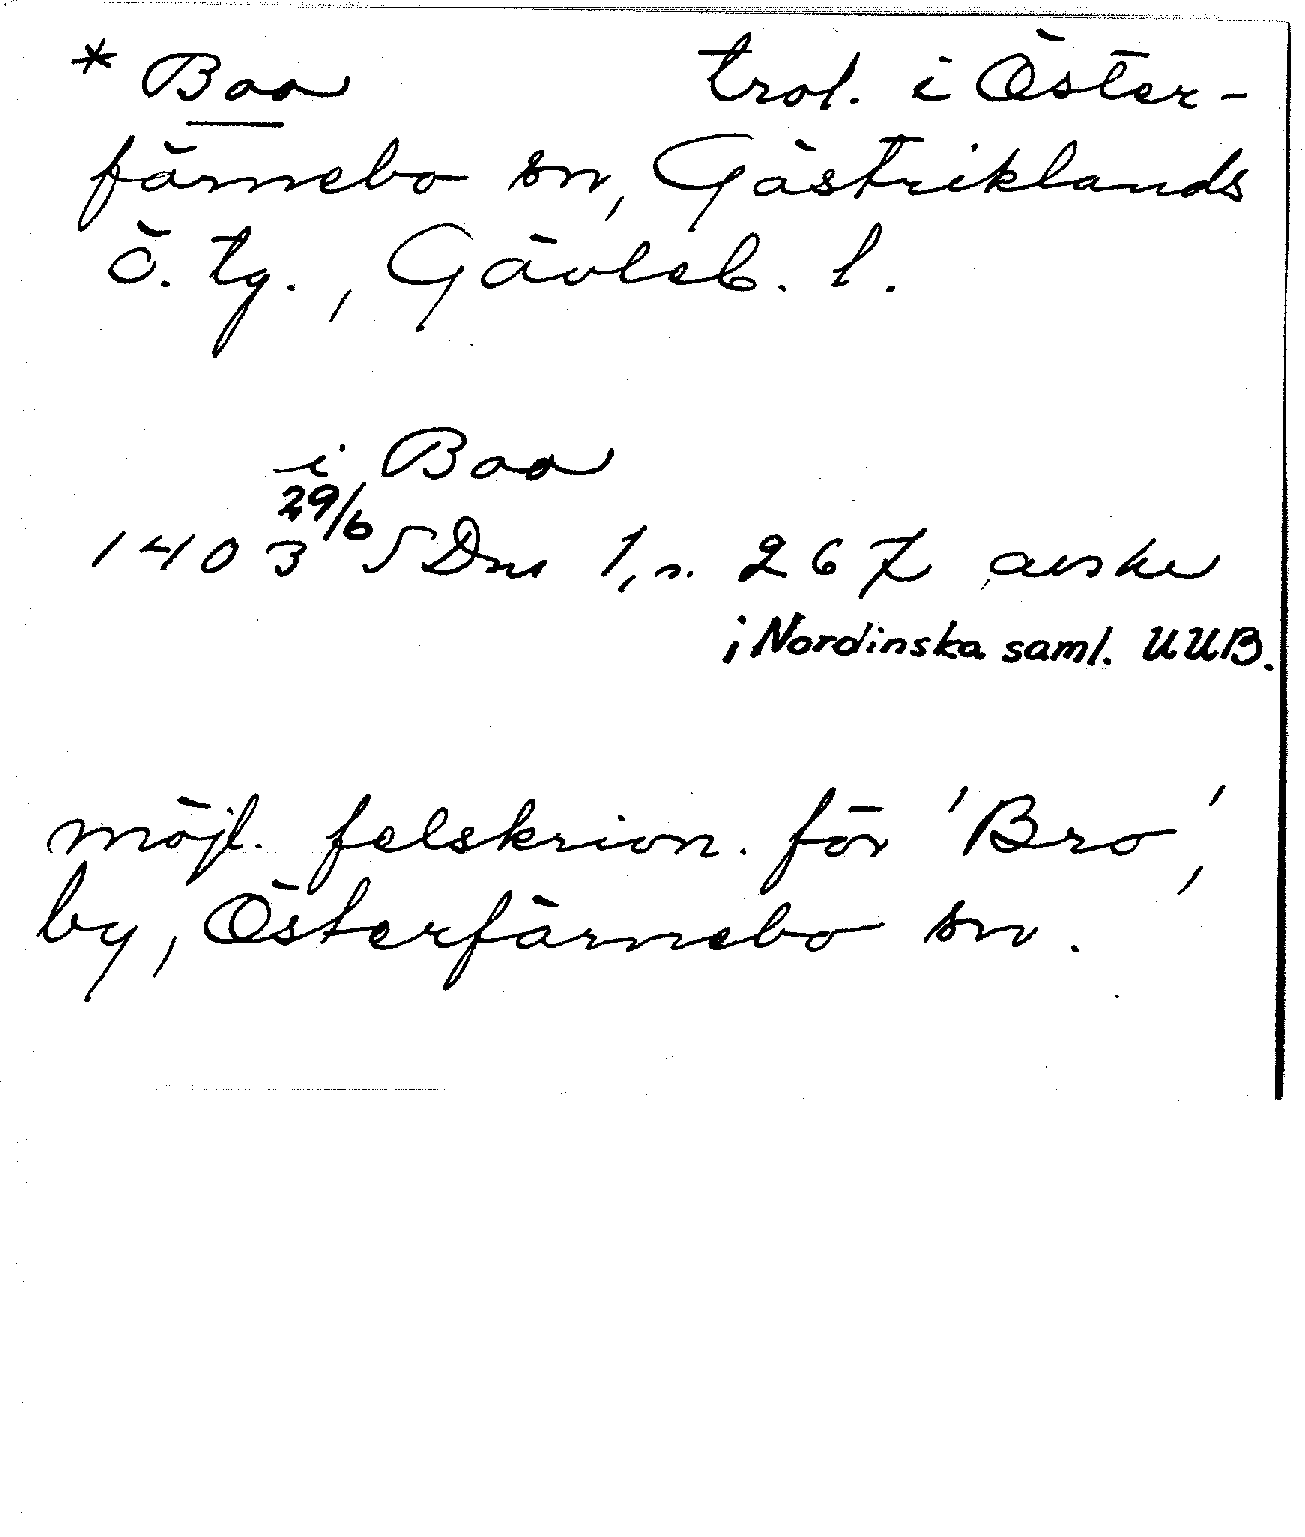 * Boo trol. i Öster-
färnebo sn, Gästriklands
ö. tg., Gävleb. l.
i Boo
1403 29/6 SDns 1, s. 267 avskr
i Nordinska saml. UUB.
möjl. felskrivn. för 'Bro',
by, Österfärnebo sn.